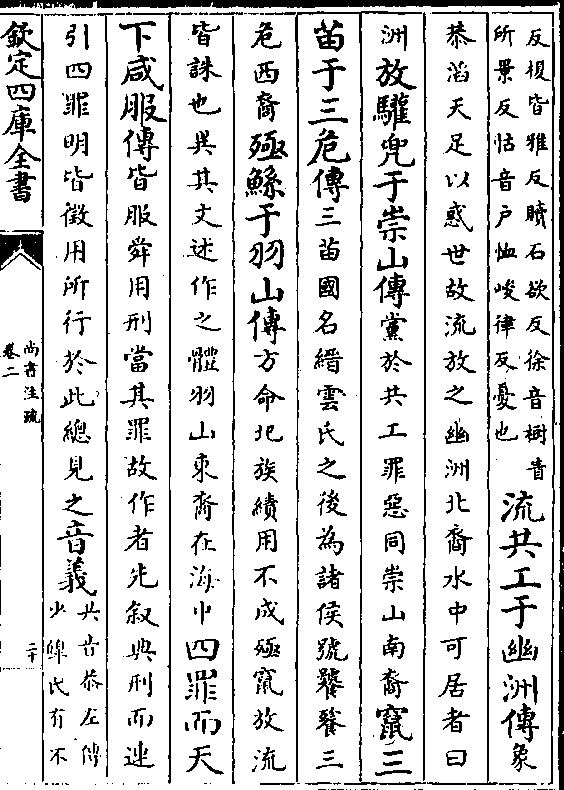 反復皆雅反贖石欲反徐音樹眚
所景反怙音户恤峻律反憂也
流共工于幽洲傳象
恭滔天足以惑世故流放之幽洲北裔水中可居者曰
洲放驩兜于崇山傳黨於共工罪惡同崇山南裔竄三
苗于三危傳三苗國名縉雲氏之後為諸侯號饕餮三
危西裔殛鯀于羽山傳方命圮族績用不成殛竄放流
皆誅也異其文述作之體羽山東裔在海中四罪而天
下咸服傳皆服舜用刑當其罪故作者先叙典刑而連
引四罪明皆徵用所行於此總見之音義
共音恭左傳
少皥氏有不
欽定四庫全書
尚書注疏
卷二
二十